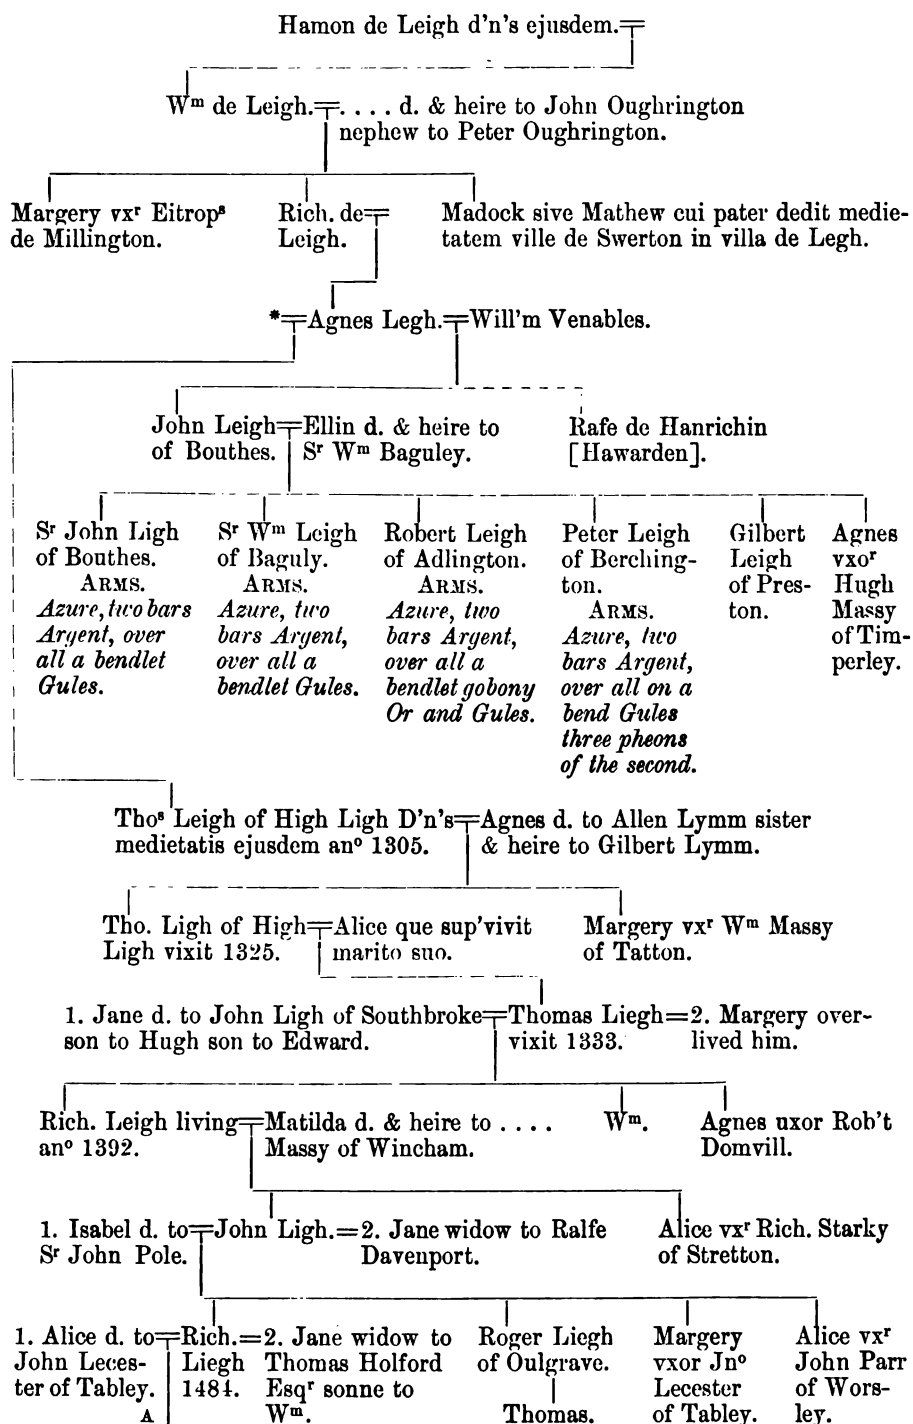 Hamon de Leigh d'n's ejusdem.
Wᵐ de Leigh. . . . . d. & heire to John Oughrington
nephew to Peter Oughrington.
Margery vxʳ Eitropˢ
de Millington.
Rich. de
Leigh.
Madock sive Mathew cui pater dedit medie-
tatem ville de Swerton in villa de Legh.
* Agnes Legh. Will'm Venables.
John Leigh
of Bouthes.
Ellin d. & heire to
Sʳ Wᵐ Baguley.
Rafe de Hanrichin
[Hawarden].
Sʳ John Ligh
of Bouthes.
ARMS.
Azure, two bars
Argent, over
all a bendlet
Gules.
Sʳ Wᵐ Leigh
of Baguly.
ARMS.
Azure, two
bars Argent,
over all a
bendlet Gules.
Robert Leigh
of Adlington.
ARMS.
Azure, two
bars Argent,
over all a
bendlet gobony
Or and Gules.
Peter Leigh
of Berching-
ton.
ARMS.
Azure, two
bars Argent,
over all on a
bend Gules
three pheons
of the second.
Gilbert
Leigh
of Pres-
ton.
Agnes
vxoʳ
Hugh
Massy
of Tim-
perley.
Thoˢ Leigh of High Ligh D'n's
medietatis ejusdem anº 1305.
Agnes d. to Allen Lymm sister
& heire to Gilbert Lymm.
Tho. Ligh of High
Ligh vixit 1325.
Alice que sup'vivit
marito suo.
Margery vxʳ Wᵐ Massy
of Tatton.
1. Jane d. to John Ligh of Southbroke
son to Hugh son to Edward.
Thomas Liegh
vixit 1333.
2. Margery over-
lived him.
Rich. Leigh living
anº 1392.
Matilda d. & heire to . . . .
Massy of Wincham.
Wᵐ.
Agnes uxor Rob't
Domvill.
1. Isabel d. to
Sʳ John Pole.
John Ligh.
2. Jane widow to Ralfe
Davenport.
Alice vxʳ Rich. Starky
of Stretton.
1. Alice d. to
John Leces-
ter of Tabley.
A
Rich.
Liegh
1484.
2. Jane widow to
Thomas Holford
Esqʳ sonne to
Wᵐ.
Roger Liegh
of Oulgrave.
Thomas.
Margery
vxor Jnº
Lecester
of Tabley.
Alice vxʳ
John Parr
of Wors-
ley.